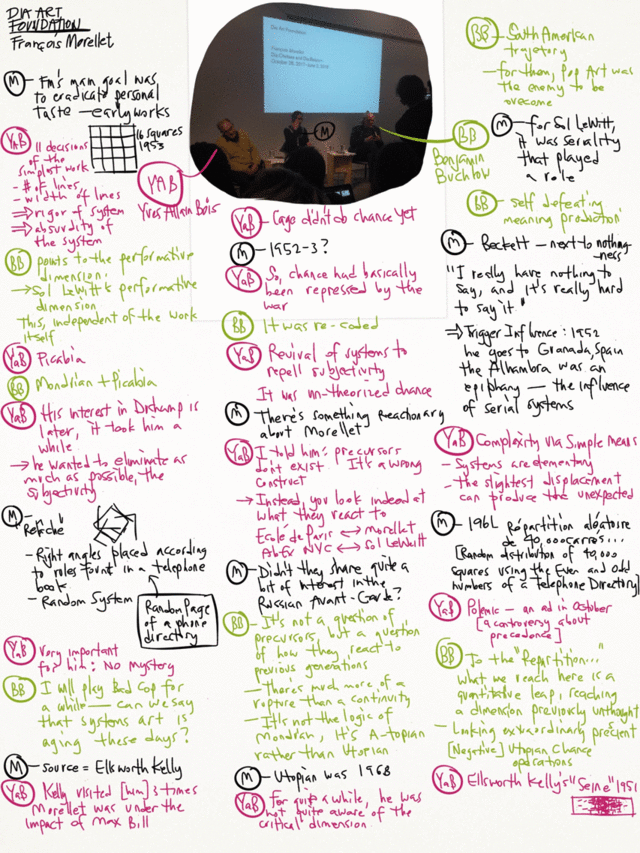 DIA ART
FOUNDATION
François Morellet
M — FM's main goal was
to eradicate personal
taste — early works
YAB 11 decisions
of the
simplest work
- # of lines
- width of lines
⇒ rigor of system
⇒ absurdity of
the system
16 squares
1953
BB points to the performative
dimension.
→ Sol LeWitt's performative
dimension
This, independent of the work
itself
YaB Picabia
BB Mondrian + Picabia
YaB His interest in Duchamp is
later, it took him a
while
→ he wanted to eliminate as
much as possible, the
subjectivity
M —
- Right angles placed according
to roles found in a telephone
book
- Random System
Random Page
of a phone
directory
YaB Very important
for him: No Mystery
BB I will play Bad Cop for
a while — can we say
that systems art is
aging these days?
M — source = Ellsworth Kelly
YaB Kelly visited [him] 3 times
Morellet was under the
impact of Max Bill
Dia Art Foundation
François Morellet
M
YAB
Yves Allain Bois
BB
Benjamin
Buchlow
YaB — Cage didn't do chance yet
M — 1952-3?
YaB So, chance had basically
been repressed by the
war
BB It was re-coded
YaB Revival of systems to
repell subjectivity
It was un-theorized chance
M — There's something reactionary
about Morellet
YaB I told him: precursors
don't exist. It's a wrong
construct
→ Instead, you look indeed at
what they react to
Ecole de Paris ↔ Morellet
AbEx NYC ↔ Sol LeWitt
M — Didn't they share quite a
bit of interest in the
Russian Avant-Garde?
BB — It's not a question of
precursors, but a question
of how they react to
previous generations
— There's much more of a
rupture than a continuity
— It's not the logic of
Mondrian, it's A-topian
rather than Utopian
M — Utopian was 1968
YaB For quite a while, he was
not quite aware of the
critical dimension.
BB — South American
trajectory
— for them, Pop Art was
the enemy to be
overcome
M — for Sol LeWitt,
it was seriality
that played
a role
BB — self defeating
meaning production
M — Beckett — next to nothing
-ness
"I really have nothing to
say, and it's really hard
to say it"
⇒ Trigger Influence: 1952
he goes to Granada, Spain
the Alhambra was an
epiphany — the influence
of serial systems
YaB Complexity via Simple Means
- Systems are elementary
- the slightest displacement
can produce the unexpected
M — Répartition aléatoire
de 40,000 carrés...
[Random distribution of 40,000
squares using the Even and Odd
numbers of a telephone Directory]
YaB Polemic — an ad in October
[a controversy about
precedence]
BB To the "Repartition..."
what we reach here is a
quantitative leap, reaching
a dimension previously unthought
— Looking extraordinary prescient
[Negative] Utopian Chance
operations
YaB Ellsworth Kelly's "Seine" 1951